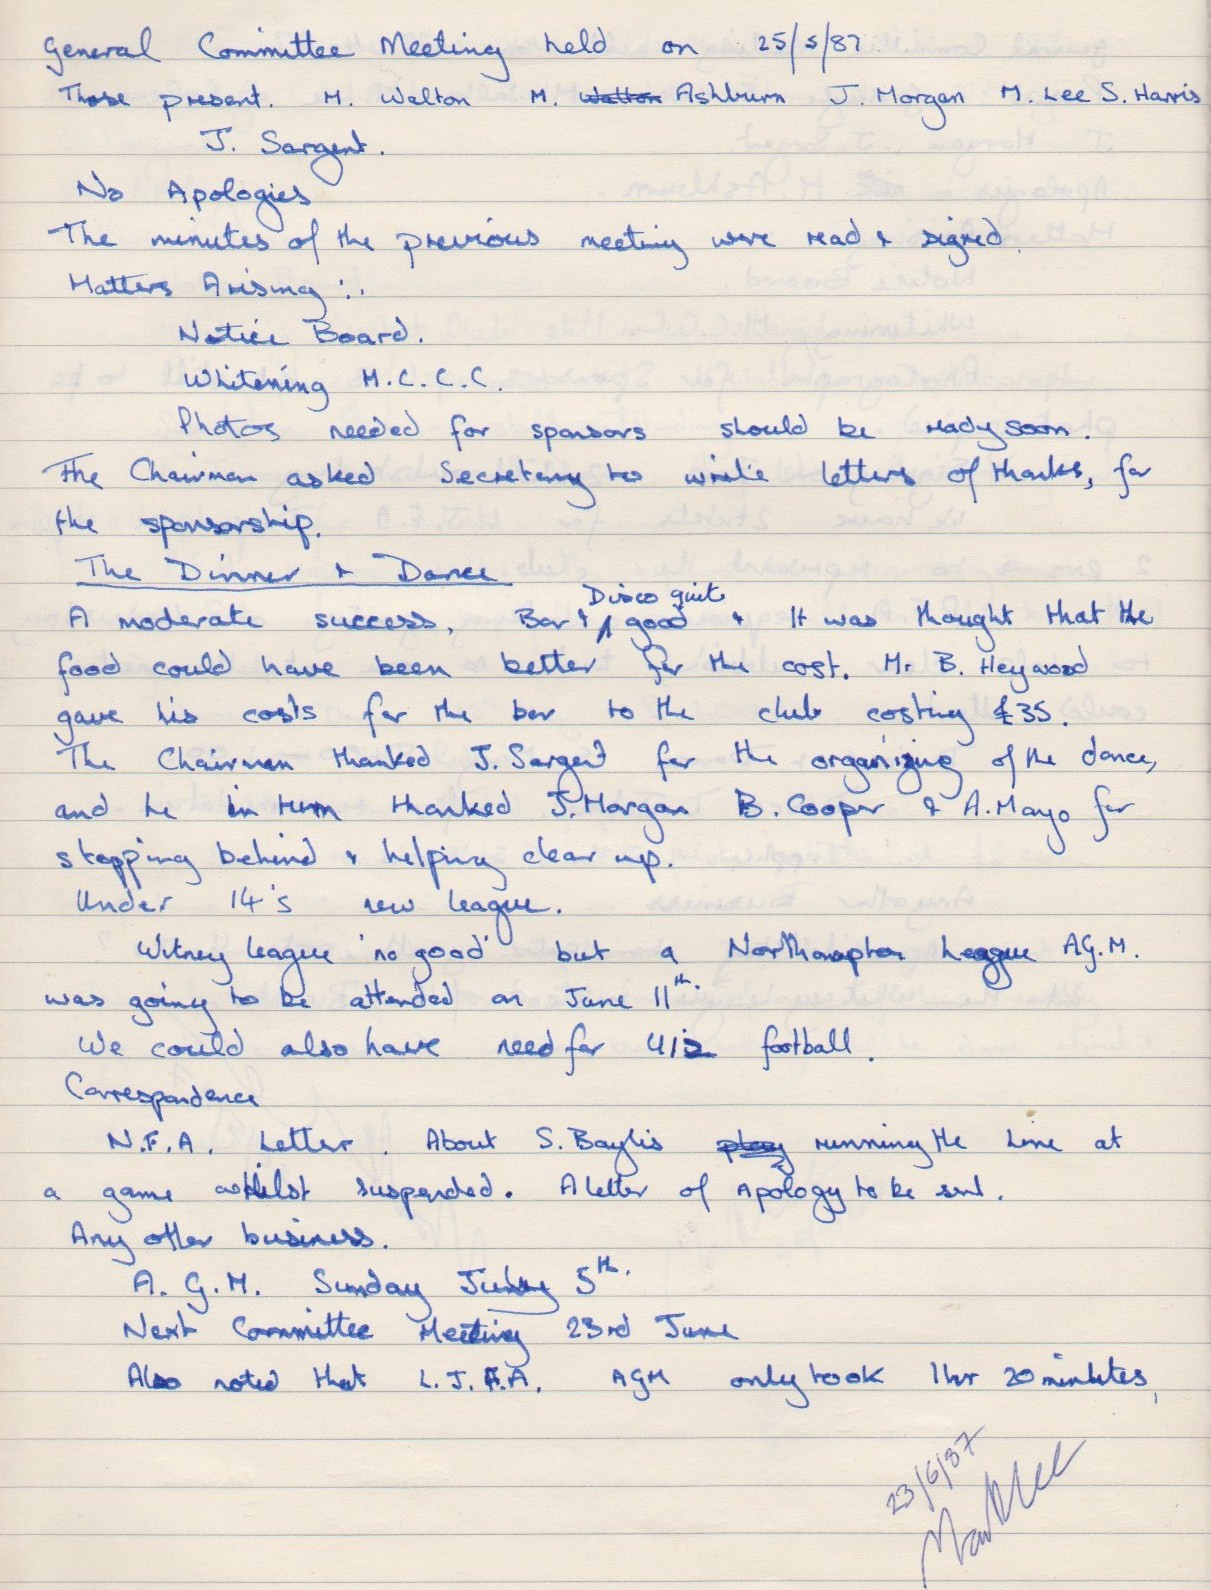 General Committee Meeting held on 25/5/87.
Those present. M. Walton M. Walton Ashburn J. Morgan M. Lee S. Harris
J. Sargent.
No Apologies
The minutes of the previous meeting were read & signed.
Matters Arising :.
Notice Board.
Whitening H.C.C.C.
Photos needed for sponsors should be ready soon.
The Chairman asked Secretary to write letters of thanks, for
the sponsorship.
The Dinner & Dance
Disco quite
A moderate success. Bar & good & It was thought that the
food could have been better for the cost. Mr B. Heywood
gave his costs for the bar to the club costing £35.
The Chairman thanked J. Sargent for the organizing of the dance,
and he in turn thanked J. Morgan B. Cooper & A. Mayo for
stopping behind & helping clear up.
Under 14's new league.
Witney league 'no good' but a Northampton League AG.M.
was going to be attended on June 11th.
We could also have need for U12 football.
Correspondence
N.F.A. Letter. About S. Baylis play running the Line at
a game whilst suspended. A letter of Apology to be sent.
Any other business.
A.G.M. Sunday July 5th.
Next Committee Meeting 23rd June
Also noted that L.J.F.A. AGM only took 1hr 20 minutes,
23/6/87
Mark Lee